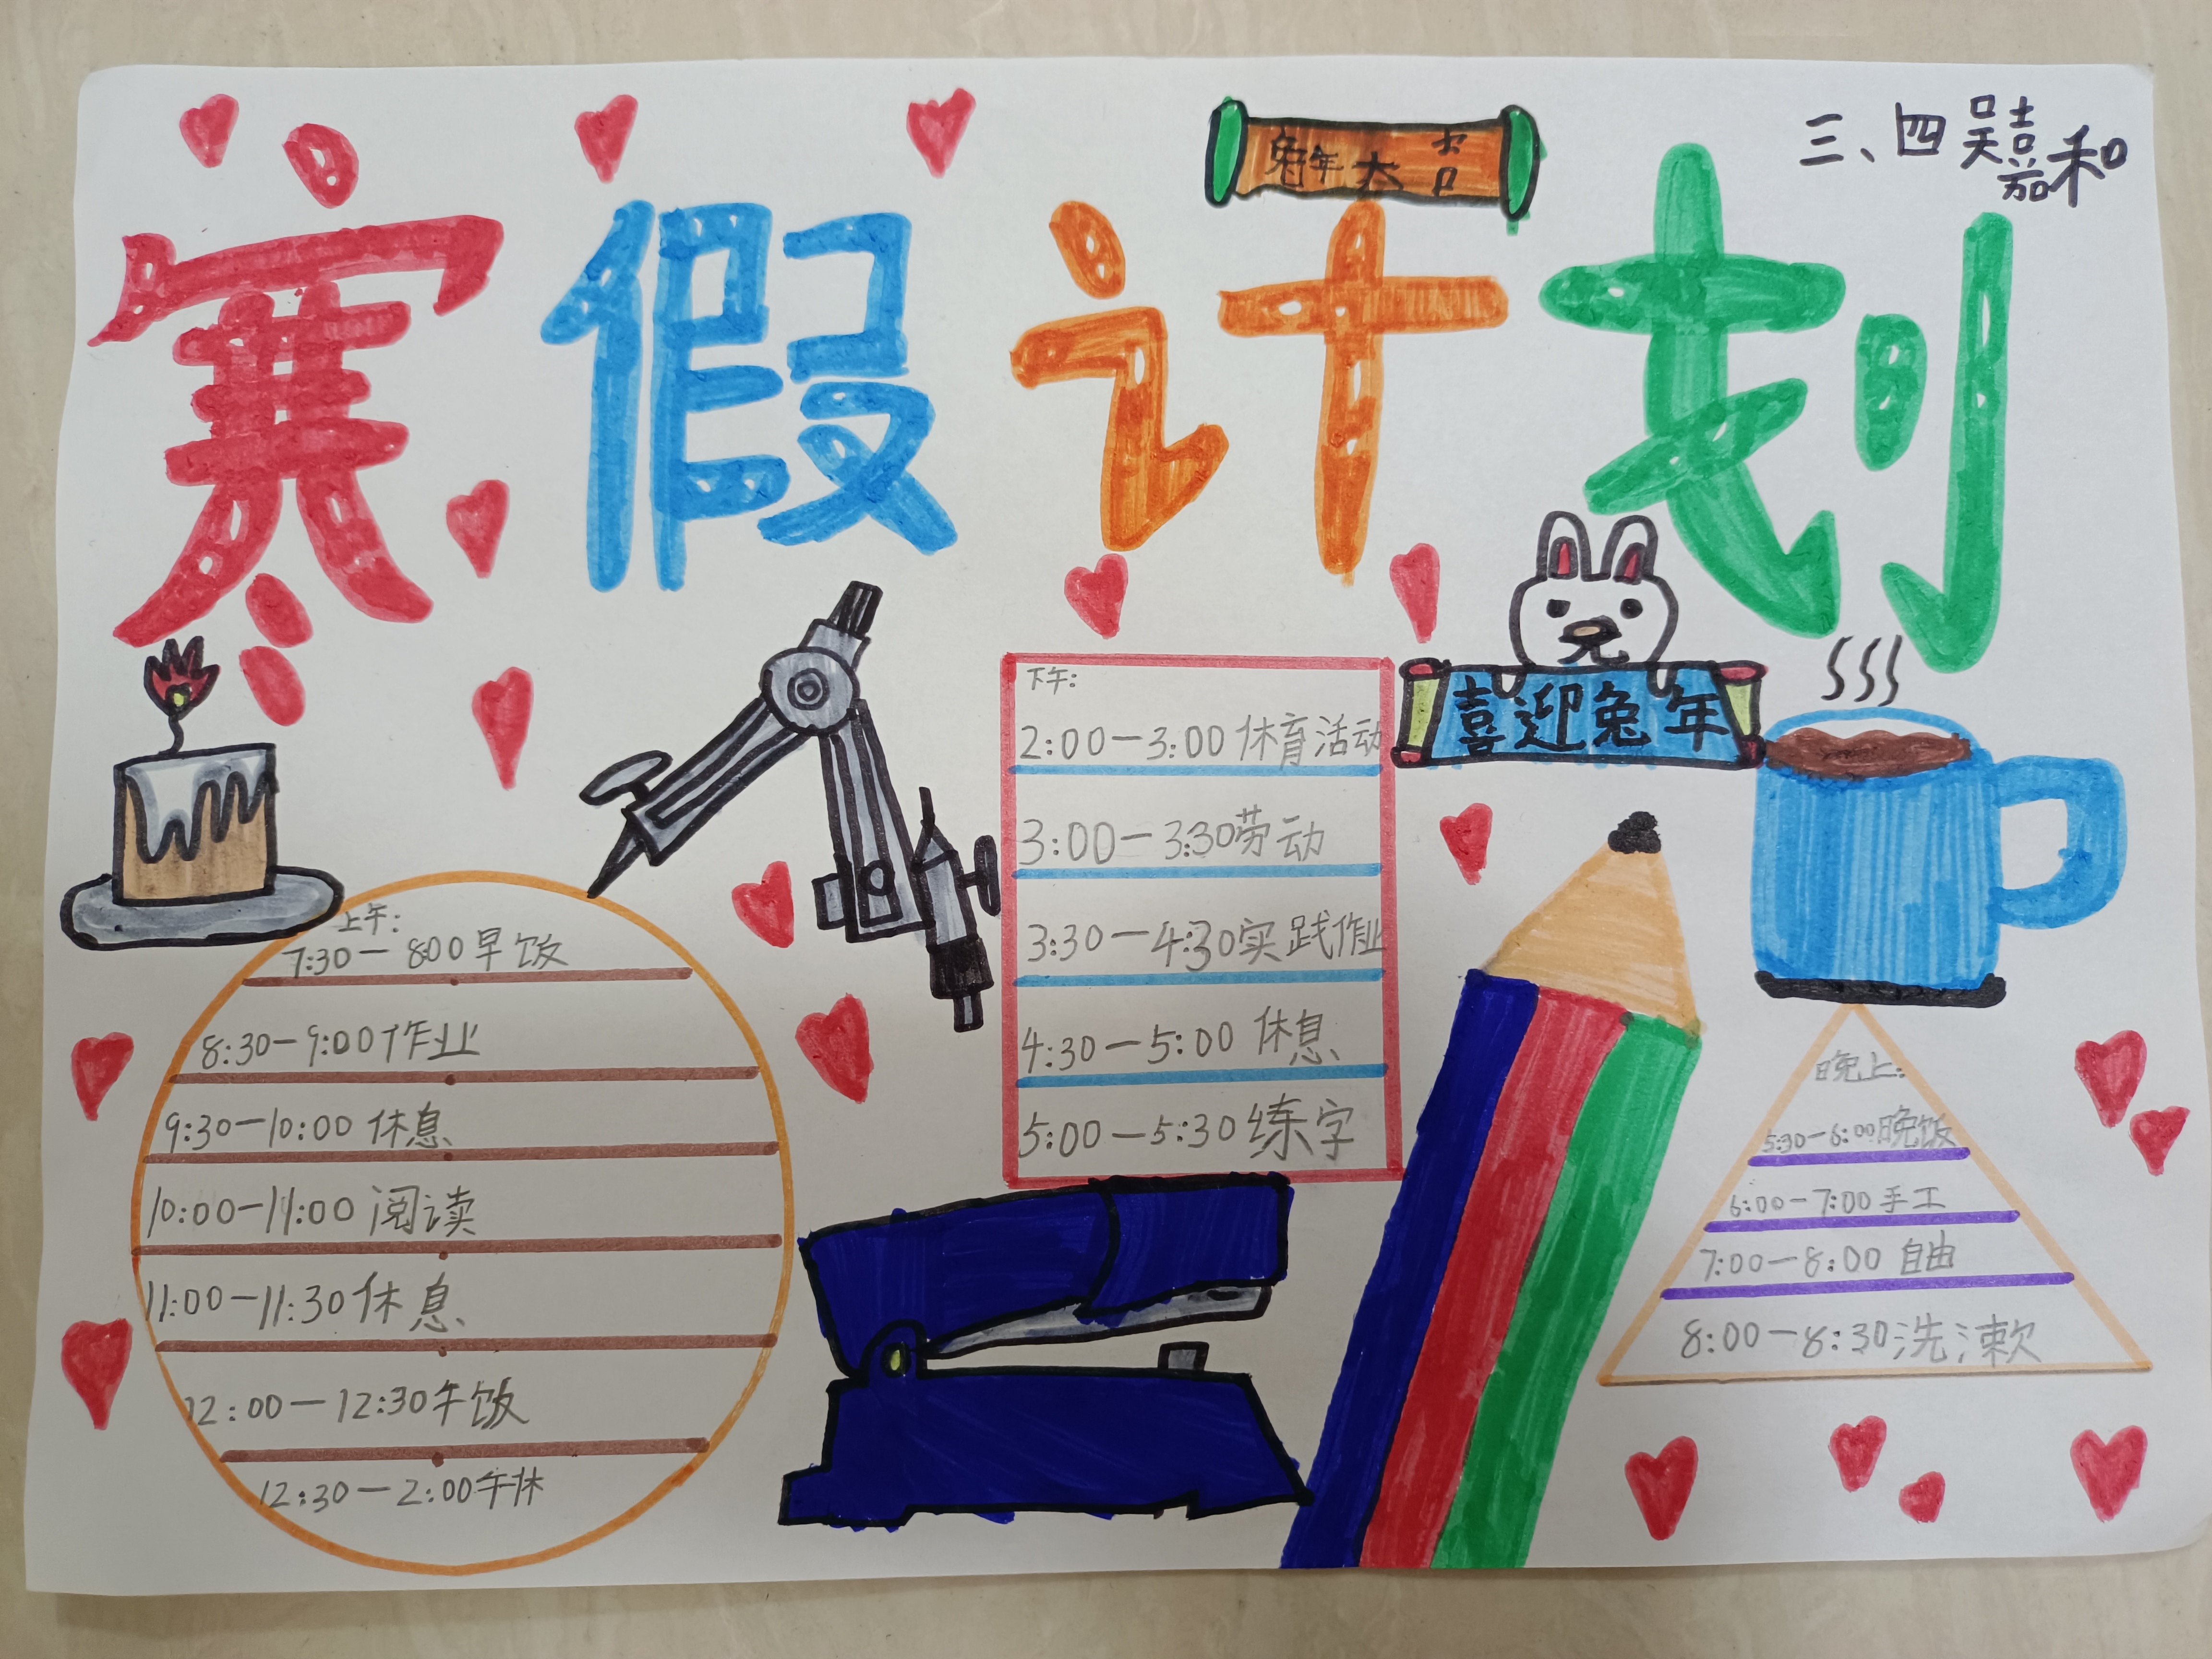 兔年大吉
三、四 吴嘉和
寒假计划
喜迎兔年
上午:
7:30—8:00早饭
8:30—9:00作业
9:30—10:00 休息
10:00—11:00 阅读
11:00—11:30休息
12:00—12:30午饭
12:30—2:00午休
下午:
2:00—3:00体育活动
3:00—3:30劳动
3:30—4:30实践作业
4:30—5:00 休息
5:00—5:30练字
晚上:
5:30—6:00晚饭
6:00—7:00手工
7:00—8:00 自由
8:00—8:30洗漱